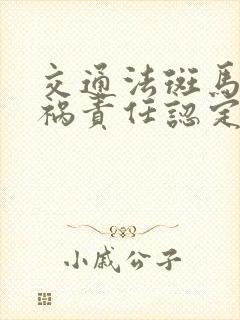 交通法斑馬
禍責任認定
小戚公子